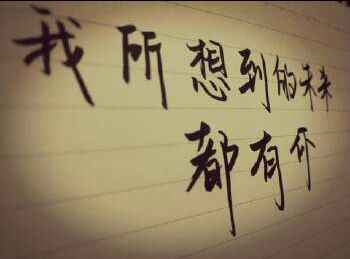 我所想到的未来
都有你